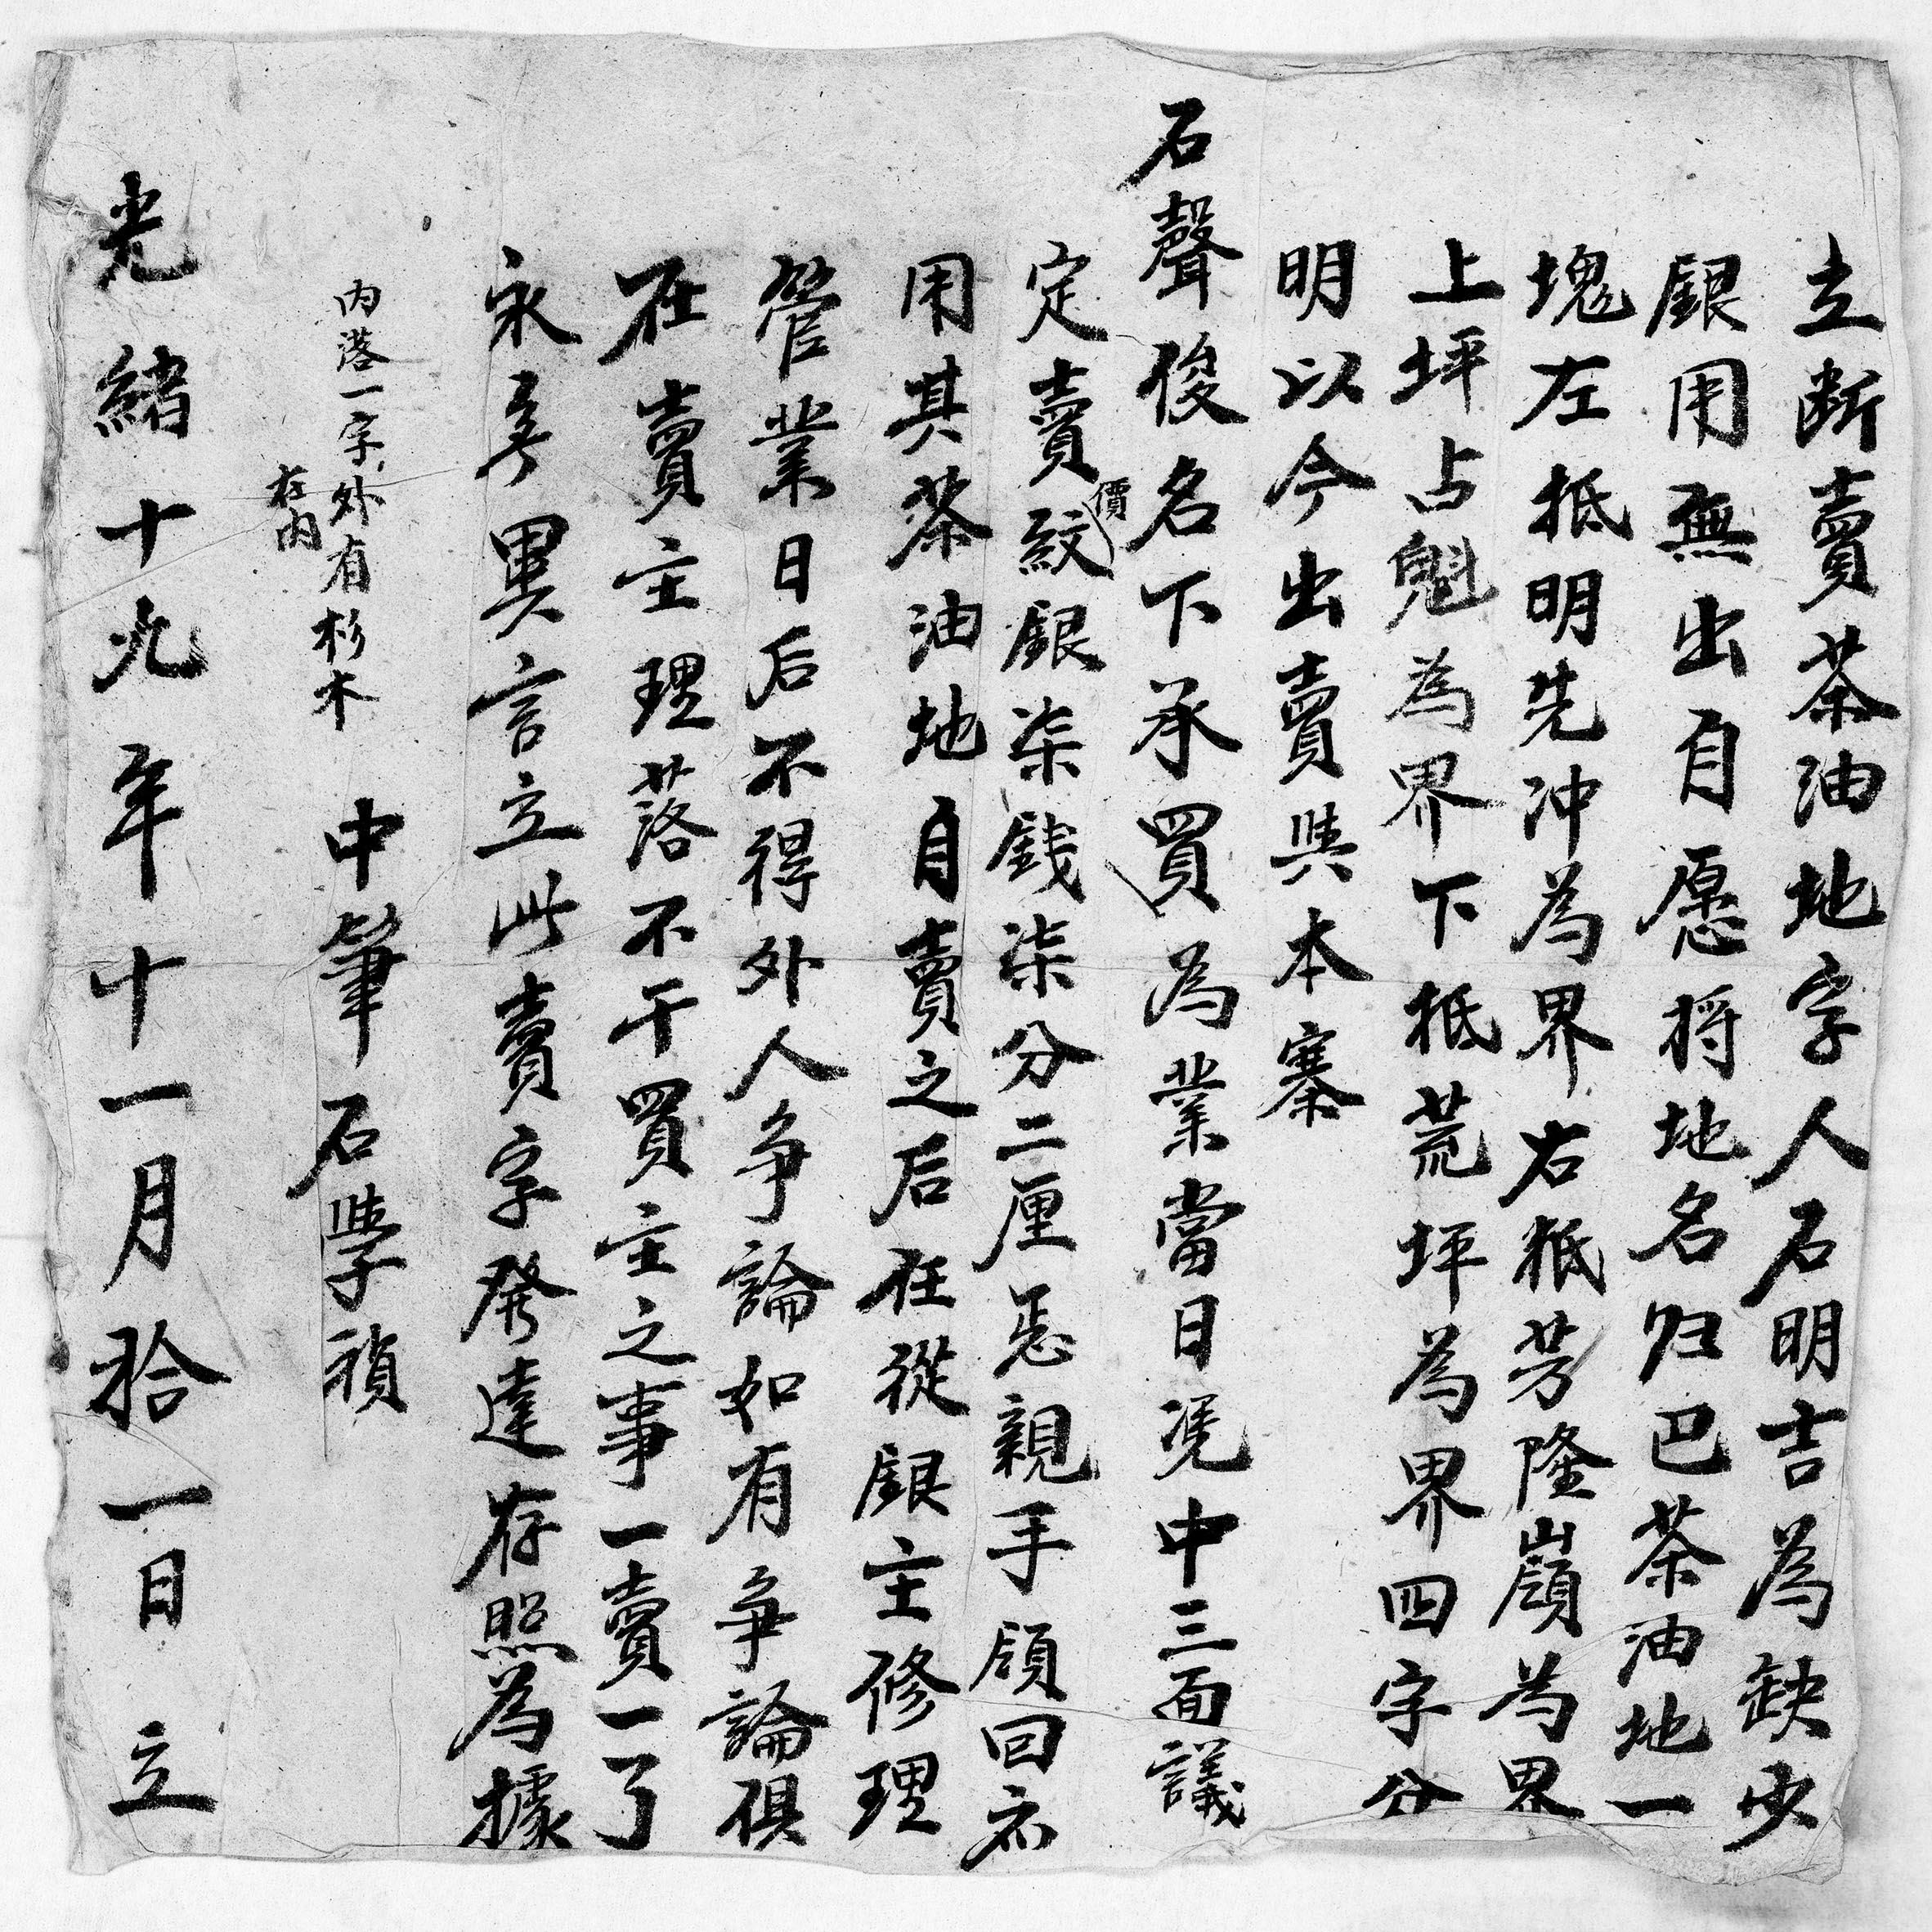 立断賣茶油地字人石明吉為缺少
銀用無出自愿将地名归巴茶油地一
塊左抵明先冲為界右抵芳隆嶺為界
上坪占魁為界下抵荒坪為界四字分
明以今出賣與本寨
石聲俊名下承買為業當日凴中三面議
定賣價紋銀柒錢柒分二厘忎親手領回亦
用其茶油地自賣之后任從銀主修理
管業日后不得外人争論如有争論俱
在賣主理落不干買主之事一賣一了
永享異言立此賣字發達存照為據
内落一字外有杉木
在内
中筆石學禎
光緒十九年十一月拾一日立